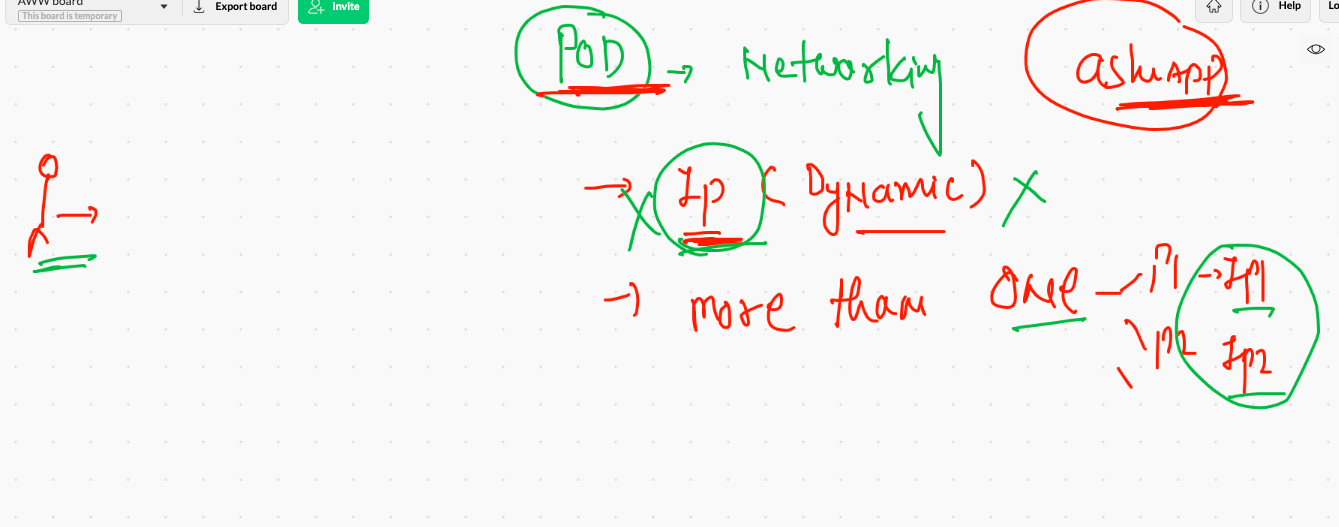 AWW board
This board is temporary
Export board
Invite
Help
Lo
POD → Networking
ashuAPP
→ Ip (Dynamic) X
→ more than One
P1 → Ip1
P2 Ip2